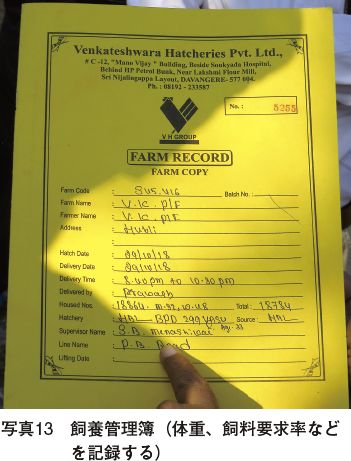 Venkateshwara Hatcheries Pvt. Ltd.,
# C -12, "Manu Vijay" Building, Beside Soukyada Hospital,
Behind HP Petrol Bunk, Near Lakshmi Flour Mill,
Sri Nijalingappa Layout, DAVANGERE- 577 004.
Ph. : 08192 - 233587
No. : 5255
V H GROUP
FARM RECORD
FARM COPY
Farm Code : SUS.416 Batch No. :
Farm Name : V.K. P/F
Farmer Name : V.K. P/F
Address : Hubli
Hatch Date : 29/10/18
Delivery Date : 29/10/18
Delivery Time : 8.40 pm to 10.30 pm
Delivered by :
Housed Nos. : 18864 Total : 18784
Hatchery : HAL BPD Source : HAL
Supervisor Name : S.B.
Line Name : P.B. Road
Lifting Date :
写真13 飼養管理簿（体重、飼料要求率など
を記録する）